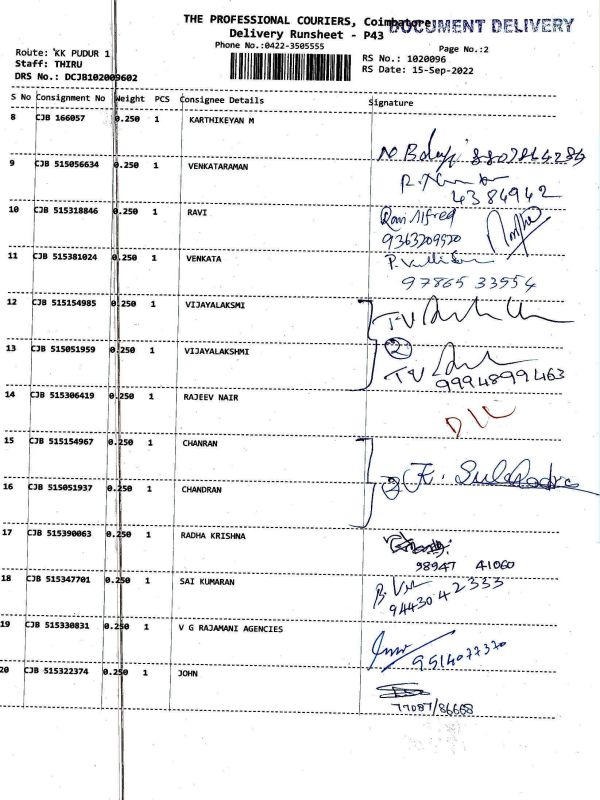 THE PROFESSIONAL COURIERS, Coimbatore
DOCUMENT DELIVERY
Delivery Runsheet - P43
Phone No.:0422-3505555
Page No.:2
Route: KK PUDUR 1
RS No.: 1020096
Staff: THIRU
RS Date: 15-Sep-2022
DRS No.: DCJB102009602
S No Consignment No Weight PCS Consignee Details Signature
8 CJB 166057 0.250 1 KARTHIKEYAN M
9 CJB 515056634 0.250 1 VENKATARAMAN
4384942
10 CJB 515318846 0.250 1 RAVI Ravi Alfred
9363209520
11 CJB 515381024 0.250 1 VENKATA
97865 33554
12 CJB 515154985 0.250 1 VIJAYALAKSMI
2
13 CJB 515051959 0.250 1 VIJAYALAKSHMI
9994899463
14 CJB 515306419 0.250 1 RAJEEV NAIR
15 CJB 515154967 0.250 1 CHANRAN
2
16 CJB 515051937 0.250 1 CHANDRAN
17 CJB 515390063 0.250 1 RADHA KRISHNA
98947 41060
18 CJB 515347701 0.250 1 SAI KUMARAN
9443042333
19 CJB 515330831 0.250 1 V G RAJAMANI AGENCIES
9514077370
20 CJB 515322374 0.250 1 JOHN
77087/86668